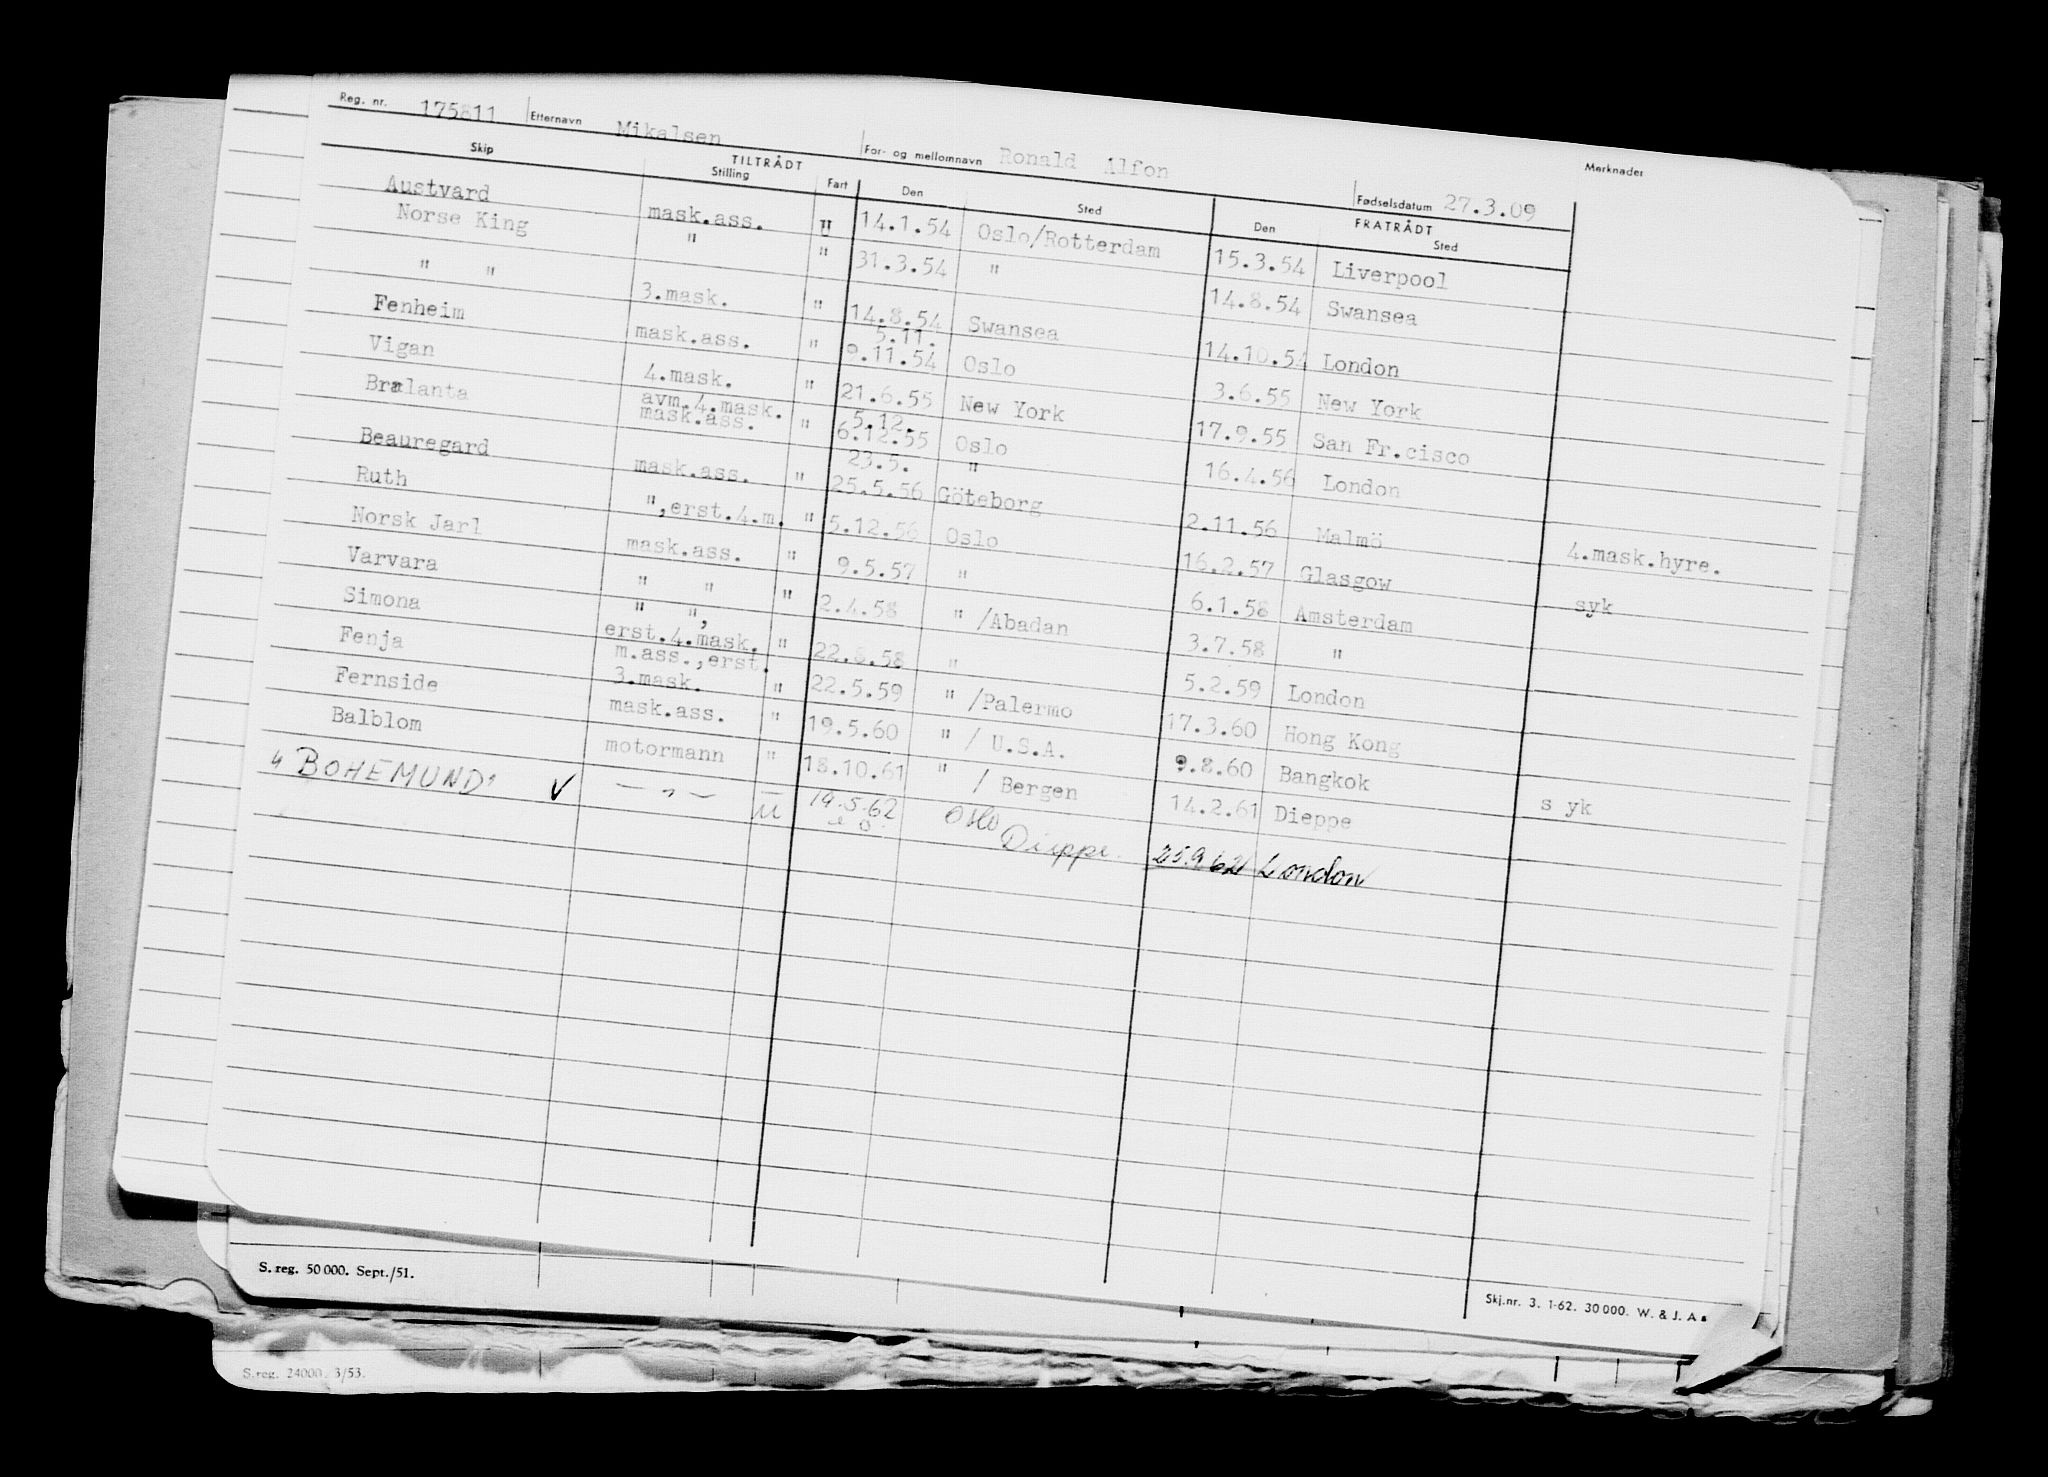 Reg. nr. 175811 Etternavn Mikalsen For- og mellomnavn Ronald Alfon Fødselsdatum 27.3.09 Merknader
TILTRÅDT FRATRÅDT
Skip Stilling Fart Den Sted Den Sted
Austvard mask.ass. " 14.1.54 Oslo/Rotterdam 15.3.54 Liverpool
Norse King " " 31.3.54 " 14.8.54 Swansea
" " 3.mask. " 14.8.54 Swansea 14.10.54 London
Fenheim mask.ass. " 5.11.
9.11.54 Oslo 3.6.55 New York
Vigan 4.mask. " 21.6.55 New York 17.9.55 San Fr.cisco
Bralanta avm.4.mask.
mask.ass. " 5.12.
6.12.55 Oslo 16.4.56 London
Beauregard mask.ass. " 23.5. "
25.5.56 Göteborg 2.11.56 Malmö 4.mask.hyre.
Ruth ",erst.4.m. " 5.12.56 Oslo 16.2.57 Glasgow syk
Norsk Jarl mask.ass. " 9.5.57 " 6.1.58 Amsterdam
Varvara " " " 2.4.58 " /Abadan 3.7.58 "
Simona " ",
erst.4.mask. " 22.8.58 " 5.2.59 London
Fenja m.ass.,erst.
3.mask. " 22.5.59 " /Palermo 17.3.60 Hong Kong
Fernside mask.ass. " 19.5.60 " / U.S.A. 9.8.60 Bangkok s yk
Balblom motormann " 18.10.61 " / Bergen 14.2.61 Dieppe
"BOHEMUND" ✓ — " — U 19.5.62 Oslo
Dieppe. 25.9.62 London
S. reg. 50 000. Sept./51.
Skj.nr. 3. 1-62. 30 000. W. & J. A s
S. reg. 24000. 3/53.